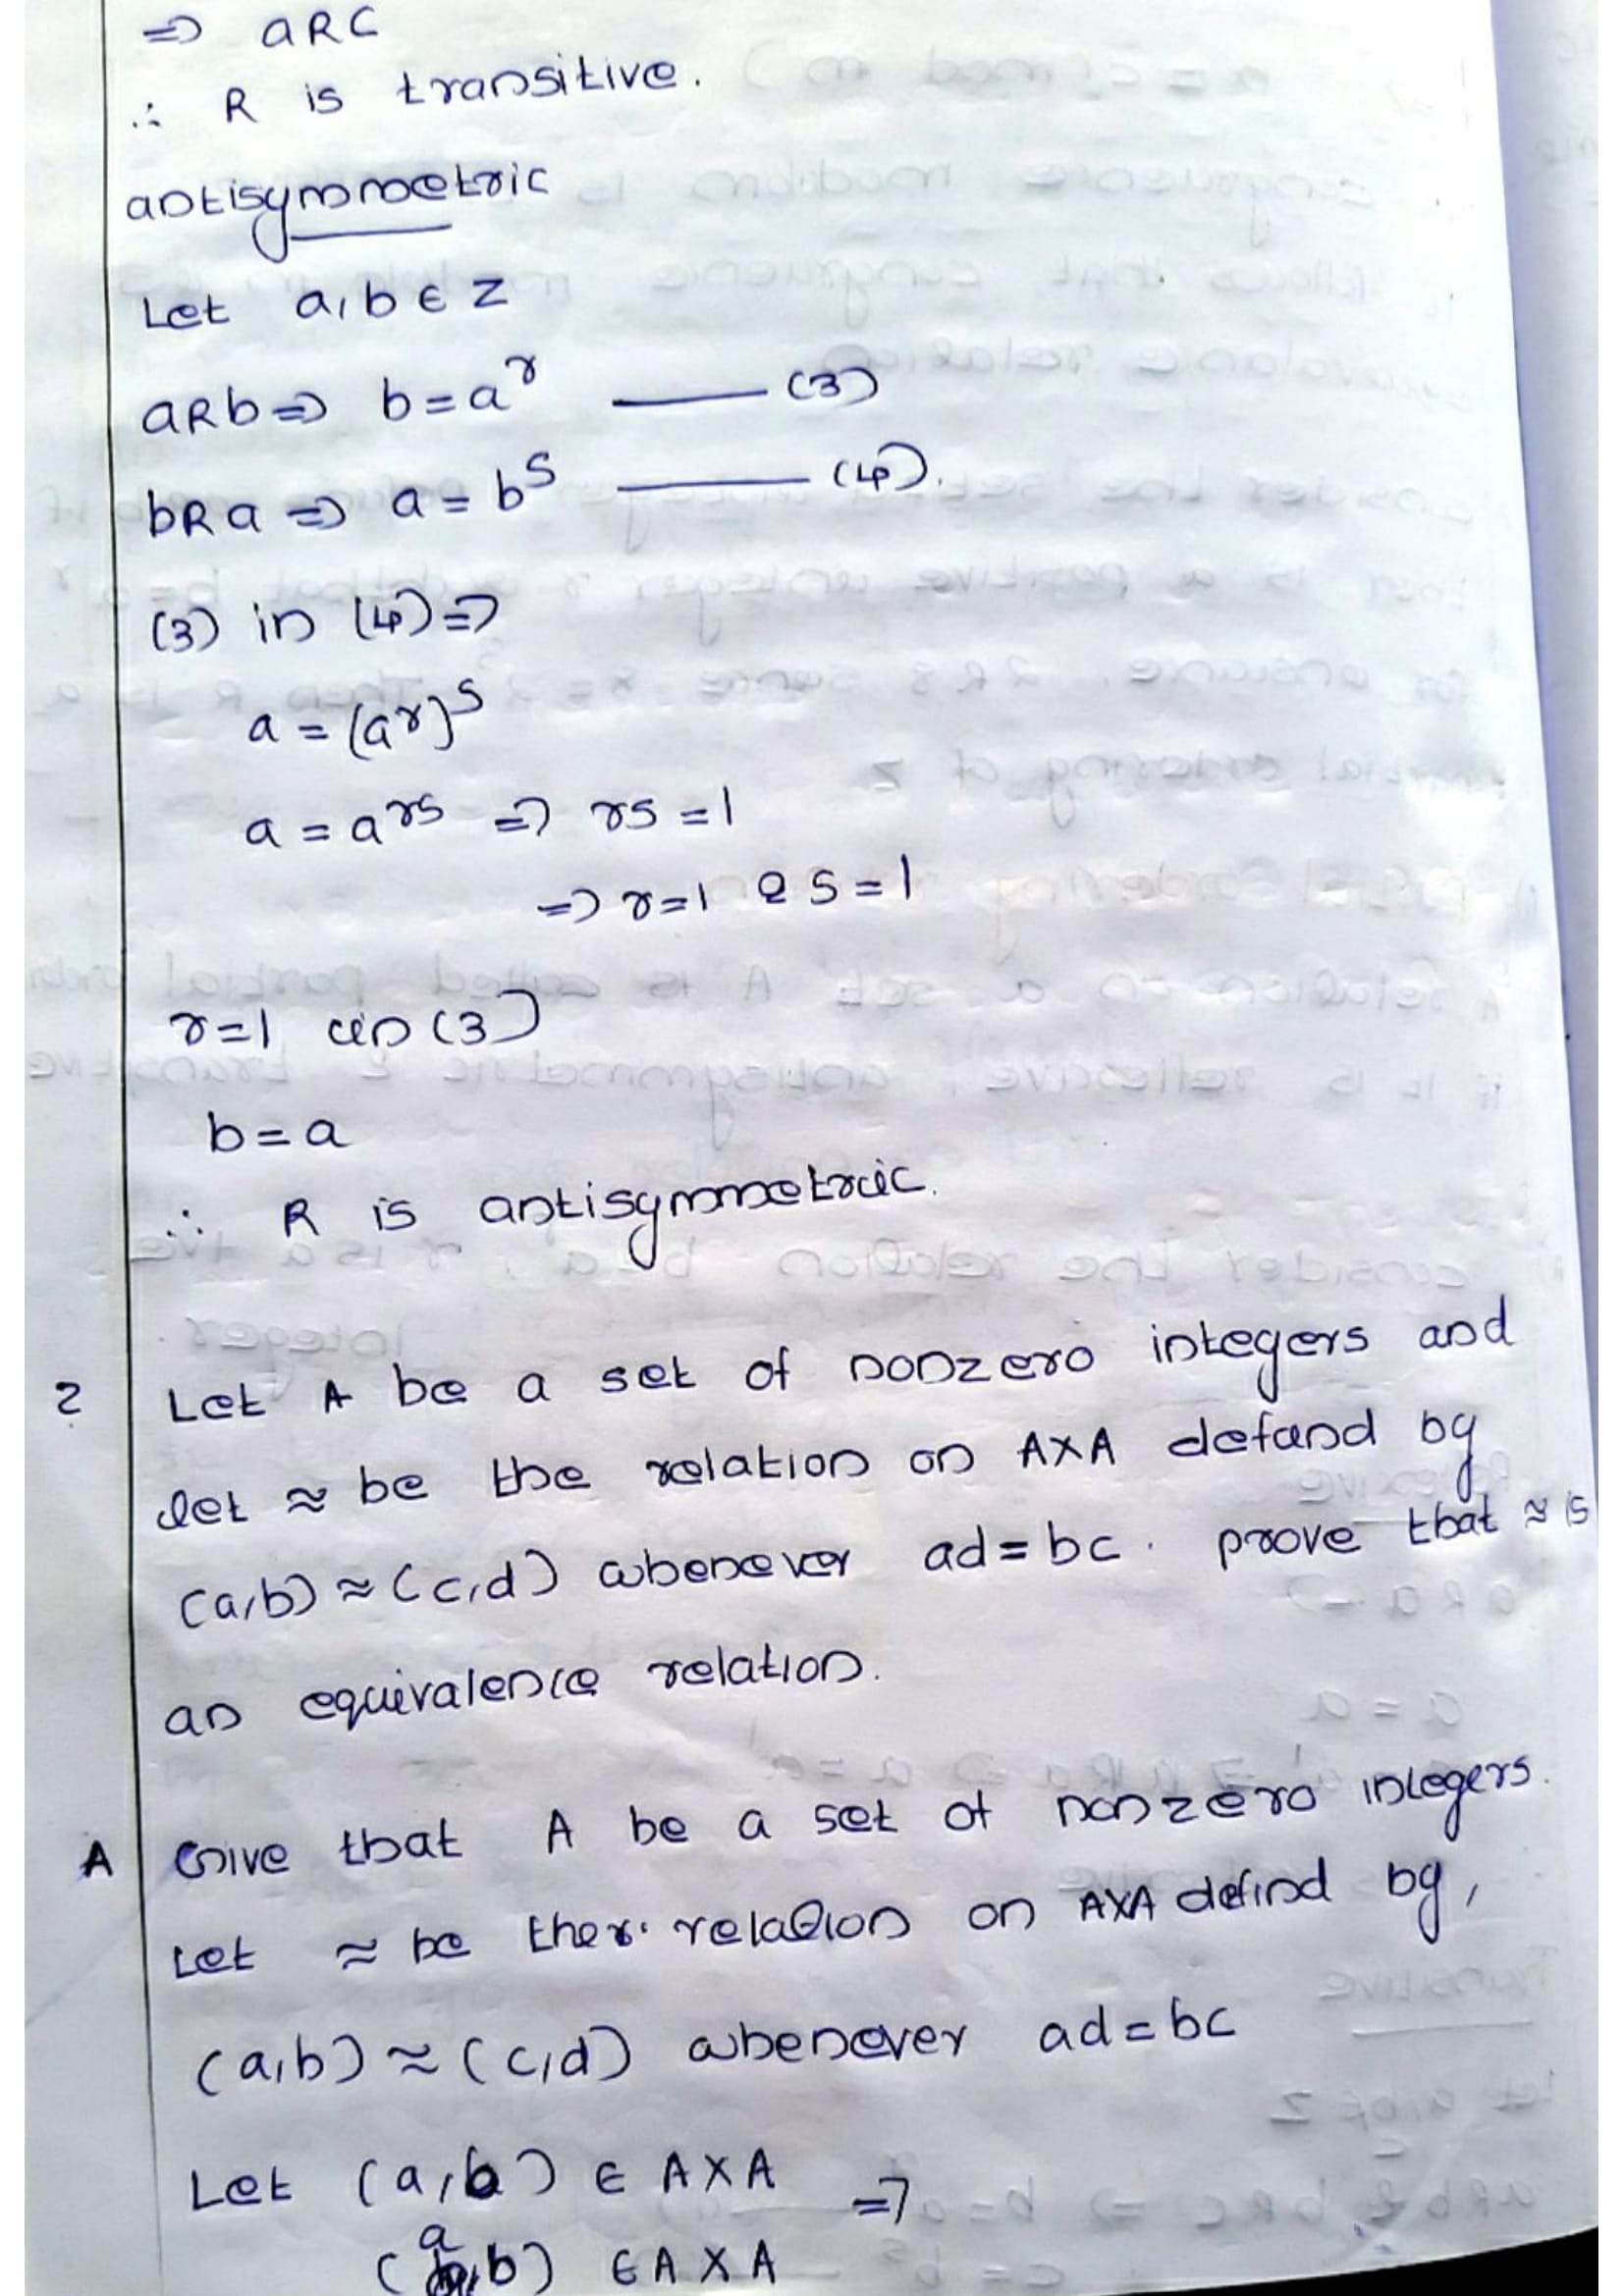 => aRC
∴ R is transitive.
antisymmetric
Let a,b ∈ Z
aRb => b = a^r —— (3)
bRa => a = b^s —— (4).
(3) in (4) =>
a = (a^r)^s
a = a^rs => rs = 1
=> r=1 & s=1
r=1 in (3)
b = a
∴ R is antisymmetric.
2 Let A be a set of nonzero integers and
let ≈ be the relation on A×A defand by
(a,b) ≈ (c,d) whenever ad = bc. prove that ≈ is
an equivalence relation.
A Give that A be a set of nonzero integers.
Let ≈ be the relation on A×A defind by,
(a,b) ≈ (c,d) whenever ad = bc
Let (a,b) ∈ A×A =>
(a,b) ∈ A×A